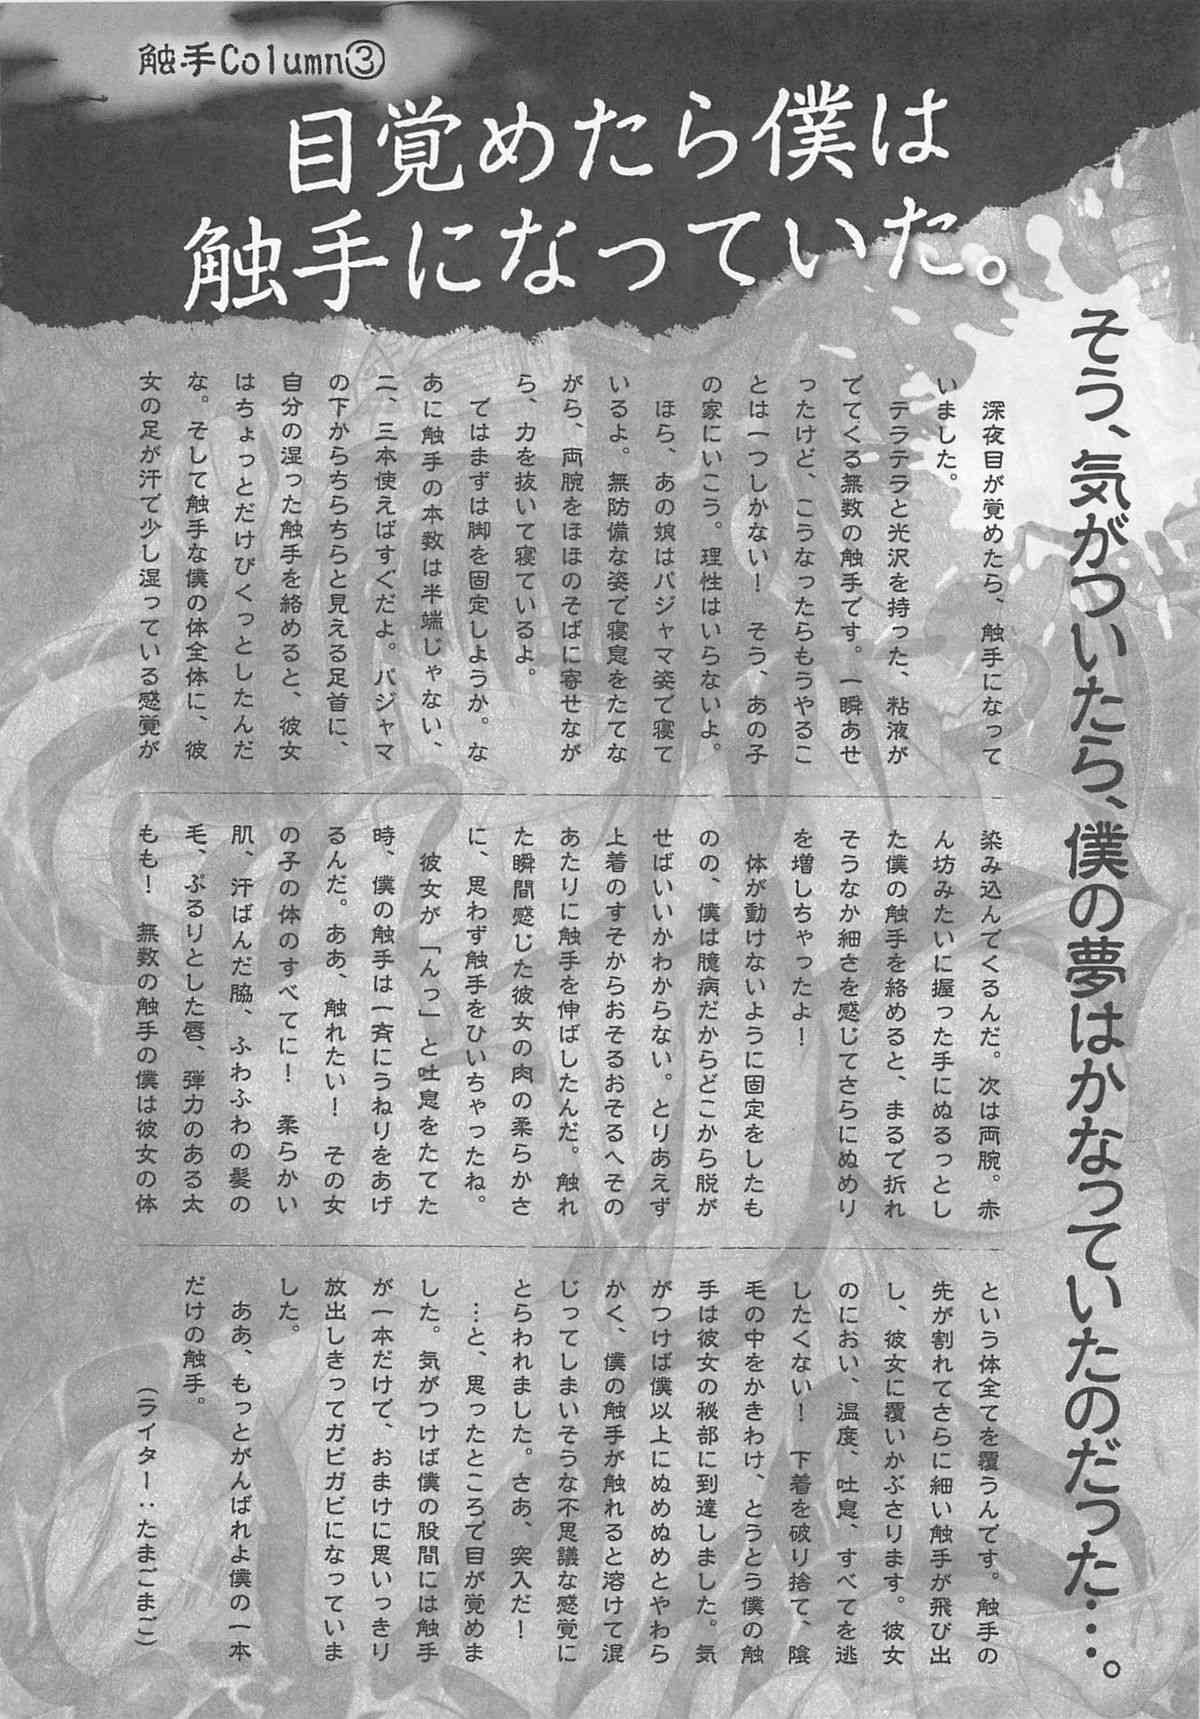 触手Column③
目覚めたら僕は
触手になっていた。
そう、気がついたら、僕の夢はかなっていたのだった…。
深夜目が覚めたら、触手になって
いました。
テラテラと光沢を持った、粘液が
でてくる無数の触手です。一瞬あせ
ったけど、こうなったらもうやるこ
とは一つしかない！　そう、あの子
の家にいこう。理性はいらないよ。
ほら、あの娘はパジャマ姿で寝て
いるよ。無防備な姿で寝息をたてな
がら、両腕をほほのそばに寄せなが
ら、力を抜いて寝ているよ。
ではまずは脚を固定しようか。な
あに触手の本数は半端じゃない、
二、三本使えばすぐだよ。パジャマ
の下からちらちらと見える足首に、
自分の湿った触手を絡めると、彼女
はちょっとだけびくっとしたんだ
な。そして触手な僕の体全体に、彼
女の足が汗で少し湿っている感覚が
染み込んでくるんだ。次は両腕。赤
ん坊みたいに握った手にぬるっとし
た僕の触手を絡めると、まるで折れ
そうなか細さを感じてさらにぬめり
を増しちゃったよ！
体が動けないように固定をしたも
のの、僕は臆病だからどこから脱が
せばいいかわからない。とりあえず
上着のすそからおそるおそるへその
あたりに触手を伸ばしたんだ。触れ
た瞬間感じた彼女の肉の柔らかさ
に、思わず触手をひいちゃったね。
彼女が「んっ」と吐息をたてた
時、僕の触手は一斉にうねりをあげ
るんだ。ああ、触れたい！　その女
の子の体のすべてに！　柔らかい
肌、汗ばんだ脇、ふわふわの髪の
毛、ぷるりとした唇、弾力のある太
もも！　無数の触手の僕は彼女の体
という体全てを覆うんです。触手の
先が割れてさらに細い触手が飛び出
し、彼女に覆いかぶさります。彼女
のにおい、温度、吐息、すべてを逃
したくない！　下着を破り捨て、陰
毛の中をかきわけ、とうとう僕の触
手は彼女の秘部に到達しました。気
がつけば僕以上にぬめぬめとやわら
かく、僕の触手が触れると溶けて混
じってしまいそうな不思議な感覚に
とらわれました。さあ、突入だ！
…と、思ったところで目が覚めま
した。気がつけば僕の股間には触手
が一本だけで、おまけに思いっきり
放出しきってガビガビになっていま
した。
ああ、もっとがんばれよ僕の一本
だけの触手。
（ライター：たまごまご）